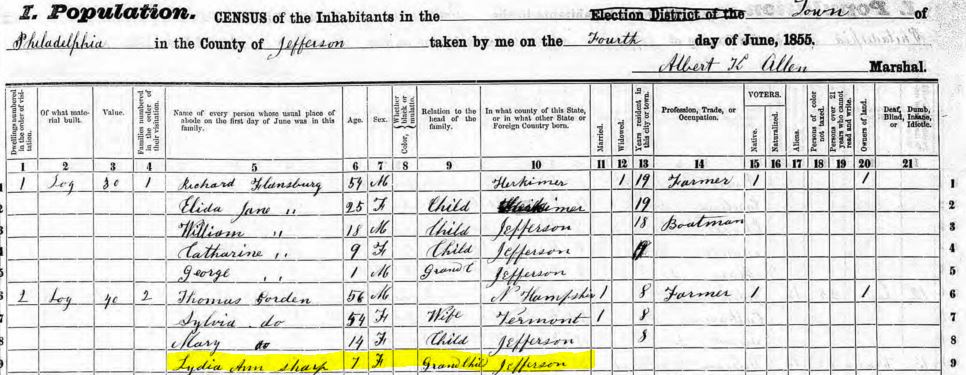 I. Population. CENSUS of the Inhabitants in the Election District of the Town of
Philadelphia in the County of Jefferson taken by me on the Fourth day of June, 1855.
Albert K Allen Marshal.
Dwellings numbered in the order of visitation. Of what material built. Value. Families numbered in the order of their visitation. Name of every person whose usual place of abode on the first day of June was in this family. Age. Sex. Color, Whether black or mulatto. Relation to the head of the family. In what county of this State, or in what other State or Foreign Country born. Married. Widowed. Years resident in this city or town. Profession, Trade, or Occupation. VOTERS. Native. Naturalized. Aliens. Persons of color not taxed. Persons over 21 years who cannot read and write. Owners of land. Deaf, Dumb, Blind, Insane, or Idiotic.
1 2 3 4 5 6 7 8 9 10 11 12 13 14 15 16 17 18 19 20 21
1 1 Log 30 1 Richard Flansburg 54 M Herkimer 1 19 Farmer 1 1 1
2 Elida Jane " 25 F Child Herkimer 19 2
3 William " 18 M Child Jefferson 18 Boatman 3
4 Catharine " 9 F Child Jefferson 9 4
5 George " 1 M Grand C Jefferson 5
6 2 Log 40 2 Thomas Dorden 56 M N Hampshire 1 8 Farmer 1 1 6
7 Sylvia do 54 F Wife Vermont 1 8 7
8 Mary do 14 F Child Jefferson 8 8
9 Lydia Ann Sharp 7 F Grand Chil Jefferson 9